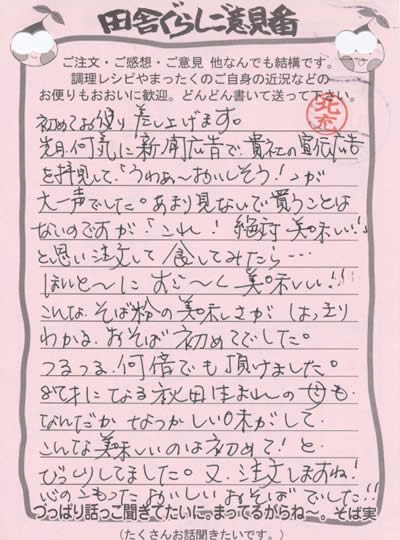 田舎ぐらしご意見番
ご注文・ご感想・ご意見 他なんでも結構です。
調理レシピやまったくのご自身の近況などの
お便りもおおいに歓迎。どんどん書いて送って下さい。
初めてお便り差し上げます。
先日、何気に新聞広告で、貴社の宣伝広告
を拝見して、「うわぁ〜おいしそう!」が
大一声でした。あまり見ないで買うことは
ないのですが「これ!絶対美味しい!」
と思い注文して食してみたら…
ほんと〜に すご〜く 美味しい!!
こんな、そば粉の美味しさが はっきり
わかる、おそば 初めてでした。
つるつる、何倍でも頂けました。
8才になる秋田生まれの母も、
なんだか なつかしい味がして、
こんな美味しいのは初めて!と
びっくりしてました。又、注文しますね!
心のこもった おいしい おそばでした!!
づっぱり話っこ聞きてたいに。まってるがらね〜。そば実
(たくさんお話聞きたいです。)